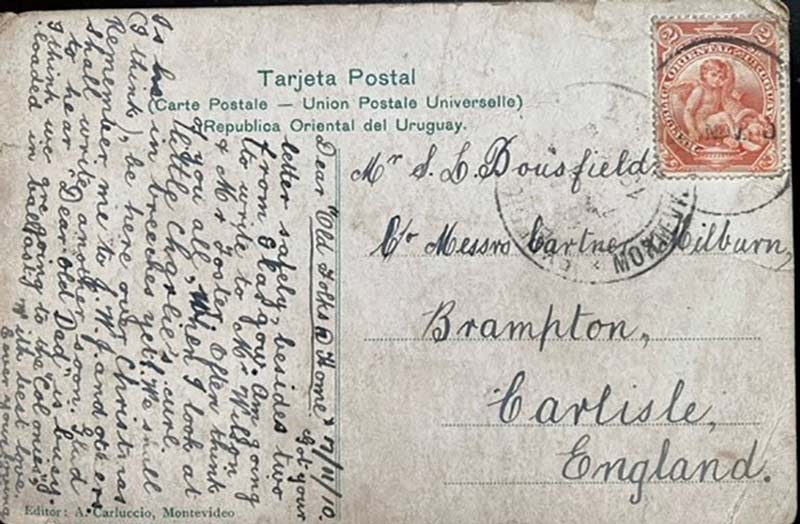 Tarjeta Postal
(Carte Postale — Union Postale Universelle)
Republica Oriental del Uruguay.
Dear "Old Folks @ Home" 17/11/10.
Got your
letter safely, besides two
from Glasgow. Am going
to write to Mr Wilson
& Mr Foster. Often think
of you all, when I look at
little Charlie's curl.
Is he in breeches yet? We shall
(I think), be here over Christmas
Remember me to J. W. J. and others
shall write another soon. Glad
to hear "Dear old Dad" is busy.
I think we are going to the Colonies,
loaded in ballast. With best love.
Ever your loving
Mr S. L. Bousfield
C/o Messrs Cartner Milburn,
Brampton,
Carlisle,
England.
2 2
REPUBLICA ORIENTAL DEL URUGUAY
MONTEVI
Editor: A. Carluccio, Montevideo